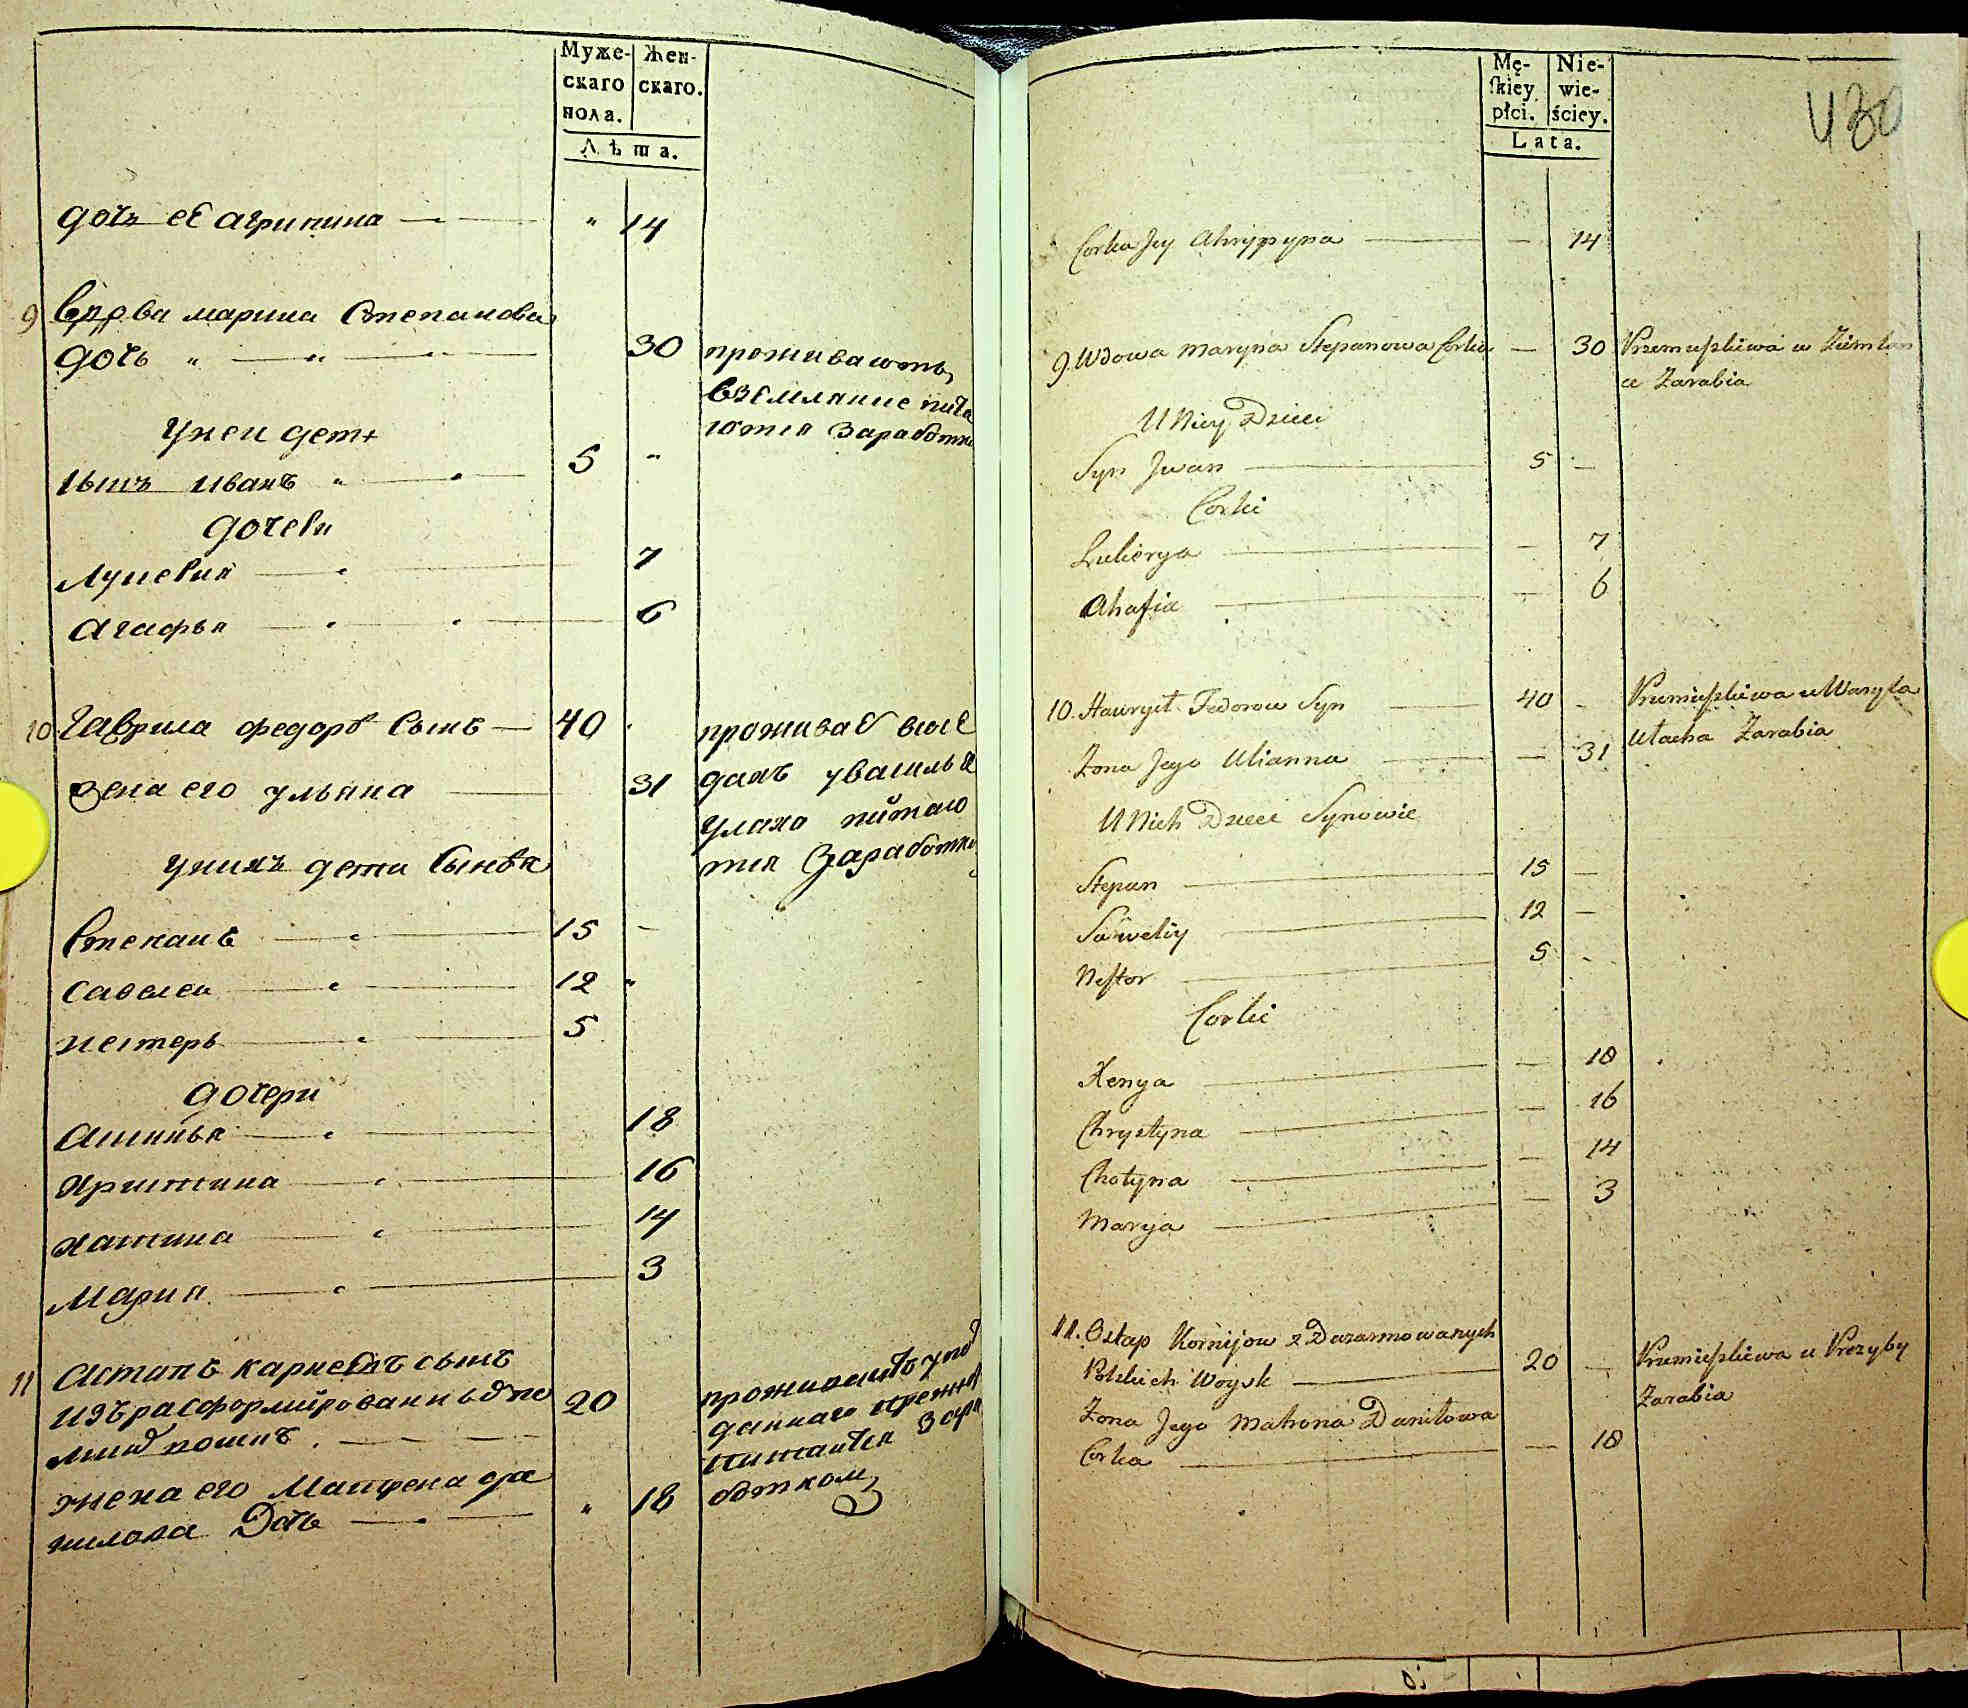 Муже-
скаго
пола.
Жен-
скаго.
Лѣта.
дочь её агрипина 14
9 вдова марина Степанова
дочь 30 проживаютъ
вземлянке пита
ются заработко
унеи дети
сынъ иванъ 5
дочери
Лукерия 7
агафья 6
10 Гаврила федоровъ сынъ 40
жена его ульяна 31
унихъ дети сыновя
Степанъ 15
савелеи 12
нестеръ 5
дочери
18
христина 16
хатина 14
Мария 3
11 Астапъ карнеевъ сынъ
изърасформированныхъ по 20
жена его Матрена да
нилова Дочь 18
Mę-
skiey
płci.
Nie-
wie-
ściey.
Lata.
430
Corka Jey Ahrypyna 14
9. Wdowa Maryna Stepanowa Corka 30 Przemieszkiwa w Ziemlan
a Zarabia
U Niey Dzieci
Syn Jwan 5
Corki
Lukierya 7
Ahafia 6
10. Hawryił Fedorow Syn 40 Przemieszkiwa u Wasyla
Ułacha Zarabia
Zona Jego Ulianna 31
U Nich Dzieci Synowie
Stepan 15
Saweliy 12
Nestor 5
Corki
Xenya 18
Chrystyna 16
Chotyna 14
Marya 3
11. Ostap Kornijow z Dazarmowanych
Polskich Woysk 20 Przemieszkiwa u Prozyby
Zarabia
Zona Jego Matrona Daniłowa
Corka 18